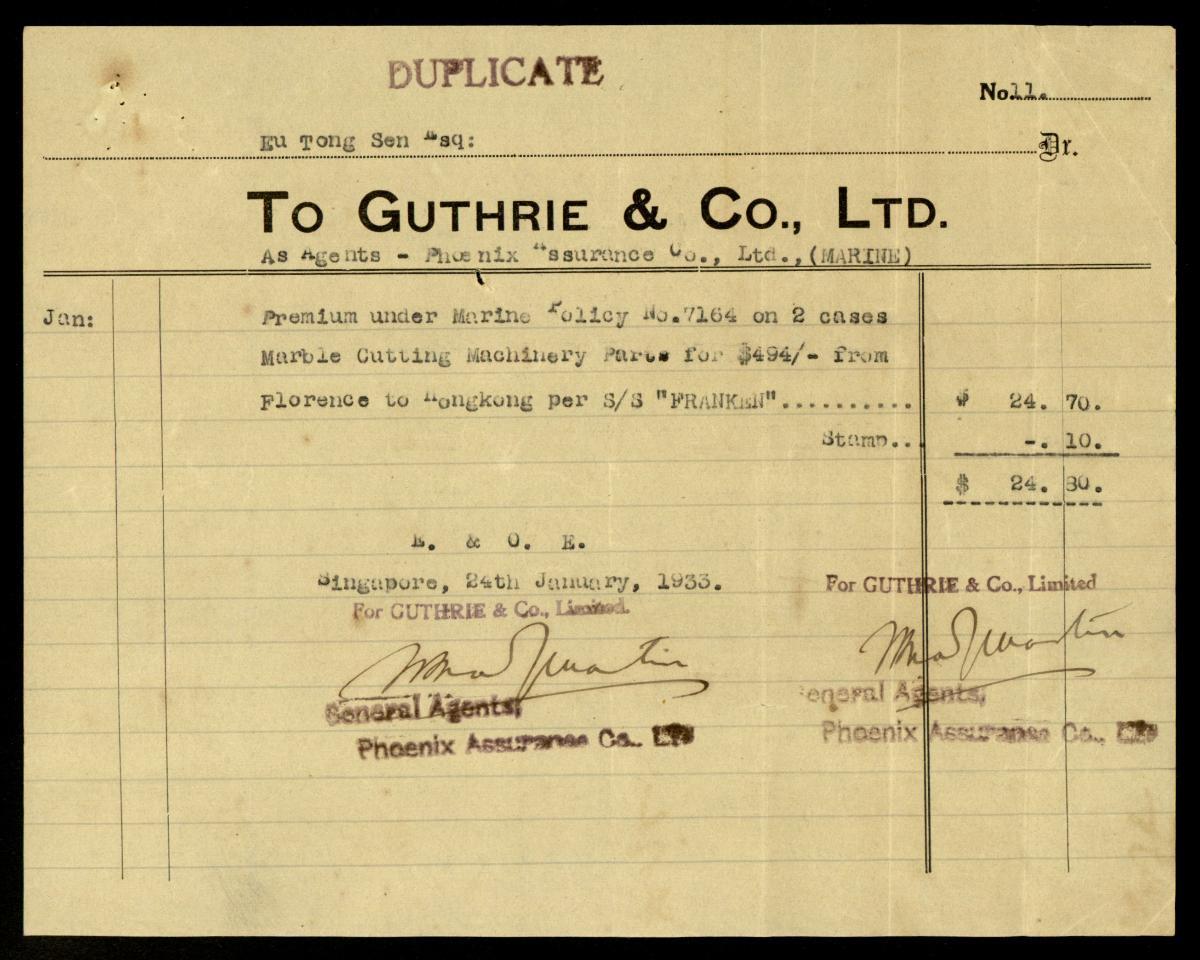 DUPLICATE
No. 11.
Eu Tong Sen Esq: Dr.
To Guthrie & Co., Ltd.
As Agents - Phoenix Assurance Co., Ltd., (MARINE)
Jan: Premium under Marine Policy No.7164 on 2 cases
Marble Cutting Machinery Parts for $494/- from
Florence to Hongkong per S/S "FRANKEN".......... $ 24. 70.
Stamp... -. 10.
$ 24. 80.
E. & O. E.
Singapore, 24th January, 1933.
For GUTHRIE & Co., Limited.
General Agents,
Phoenix Assurance Co., Ltd
For GUTHRIE & Co., Limited
General Agents,
Phoenix Assurance Co., Ltd